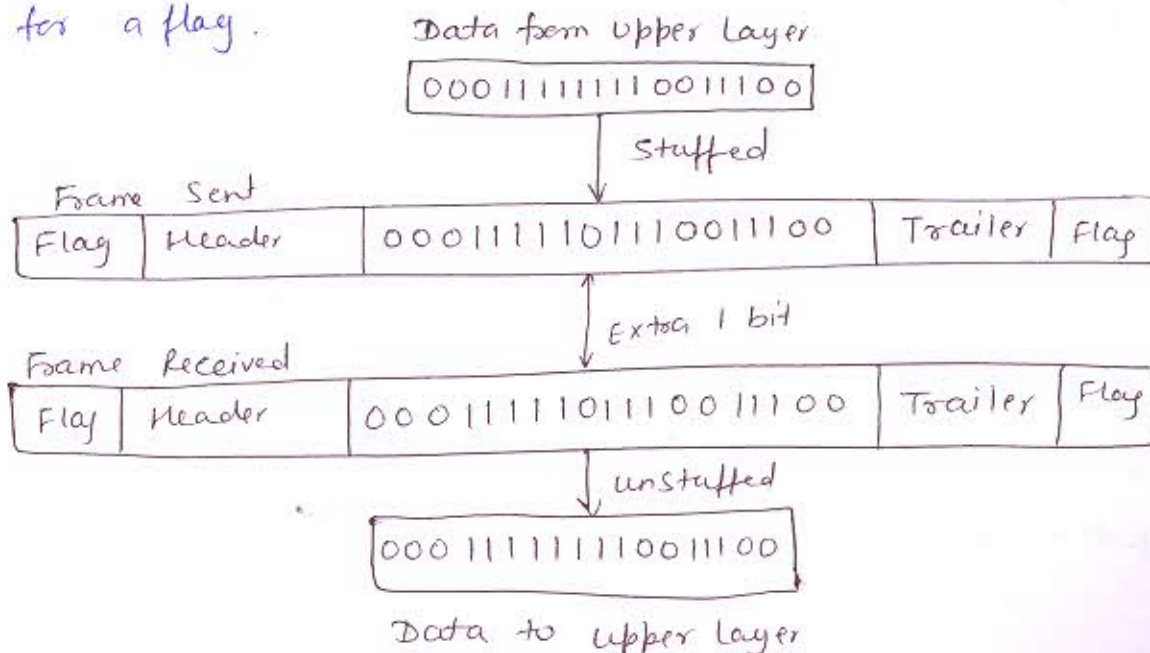 for a flag.
Data from Upper Layer
0001111111110011100
Stuffed
Frame Sent
Flag Header 00011111101110011100 Trailer Flag
Extra 1 bit
Frame Received
Flag Header 00011111101110011100 Trailer Flag
unstuffed
0001111111110011100
Data to upper Layer